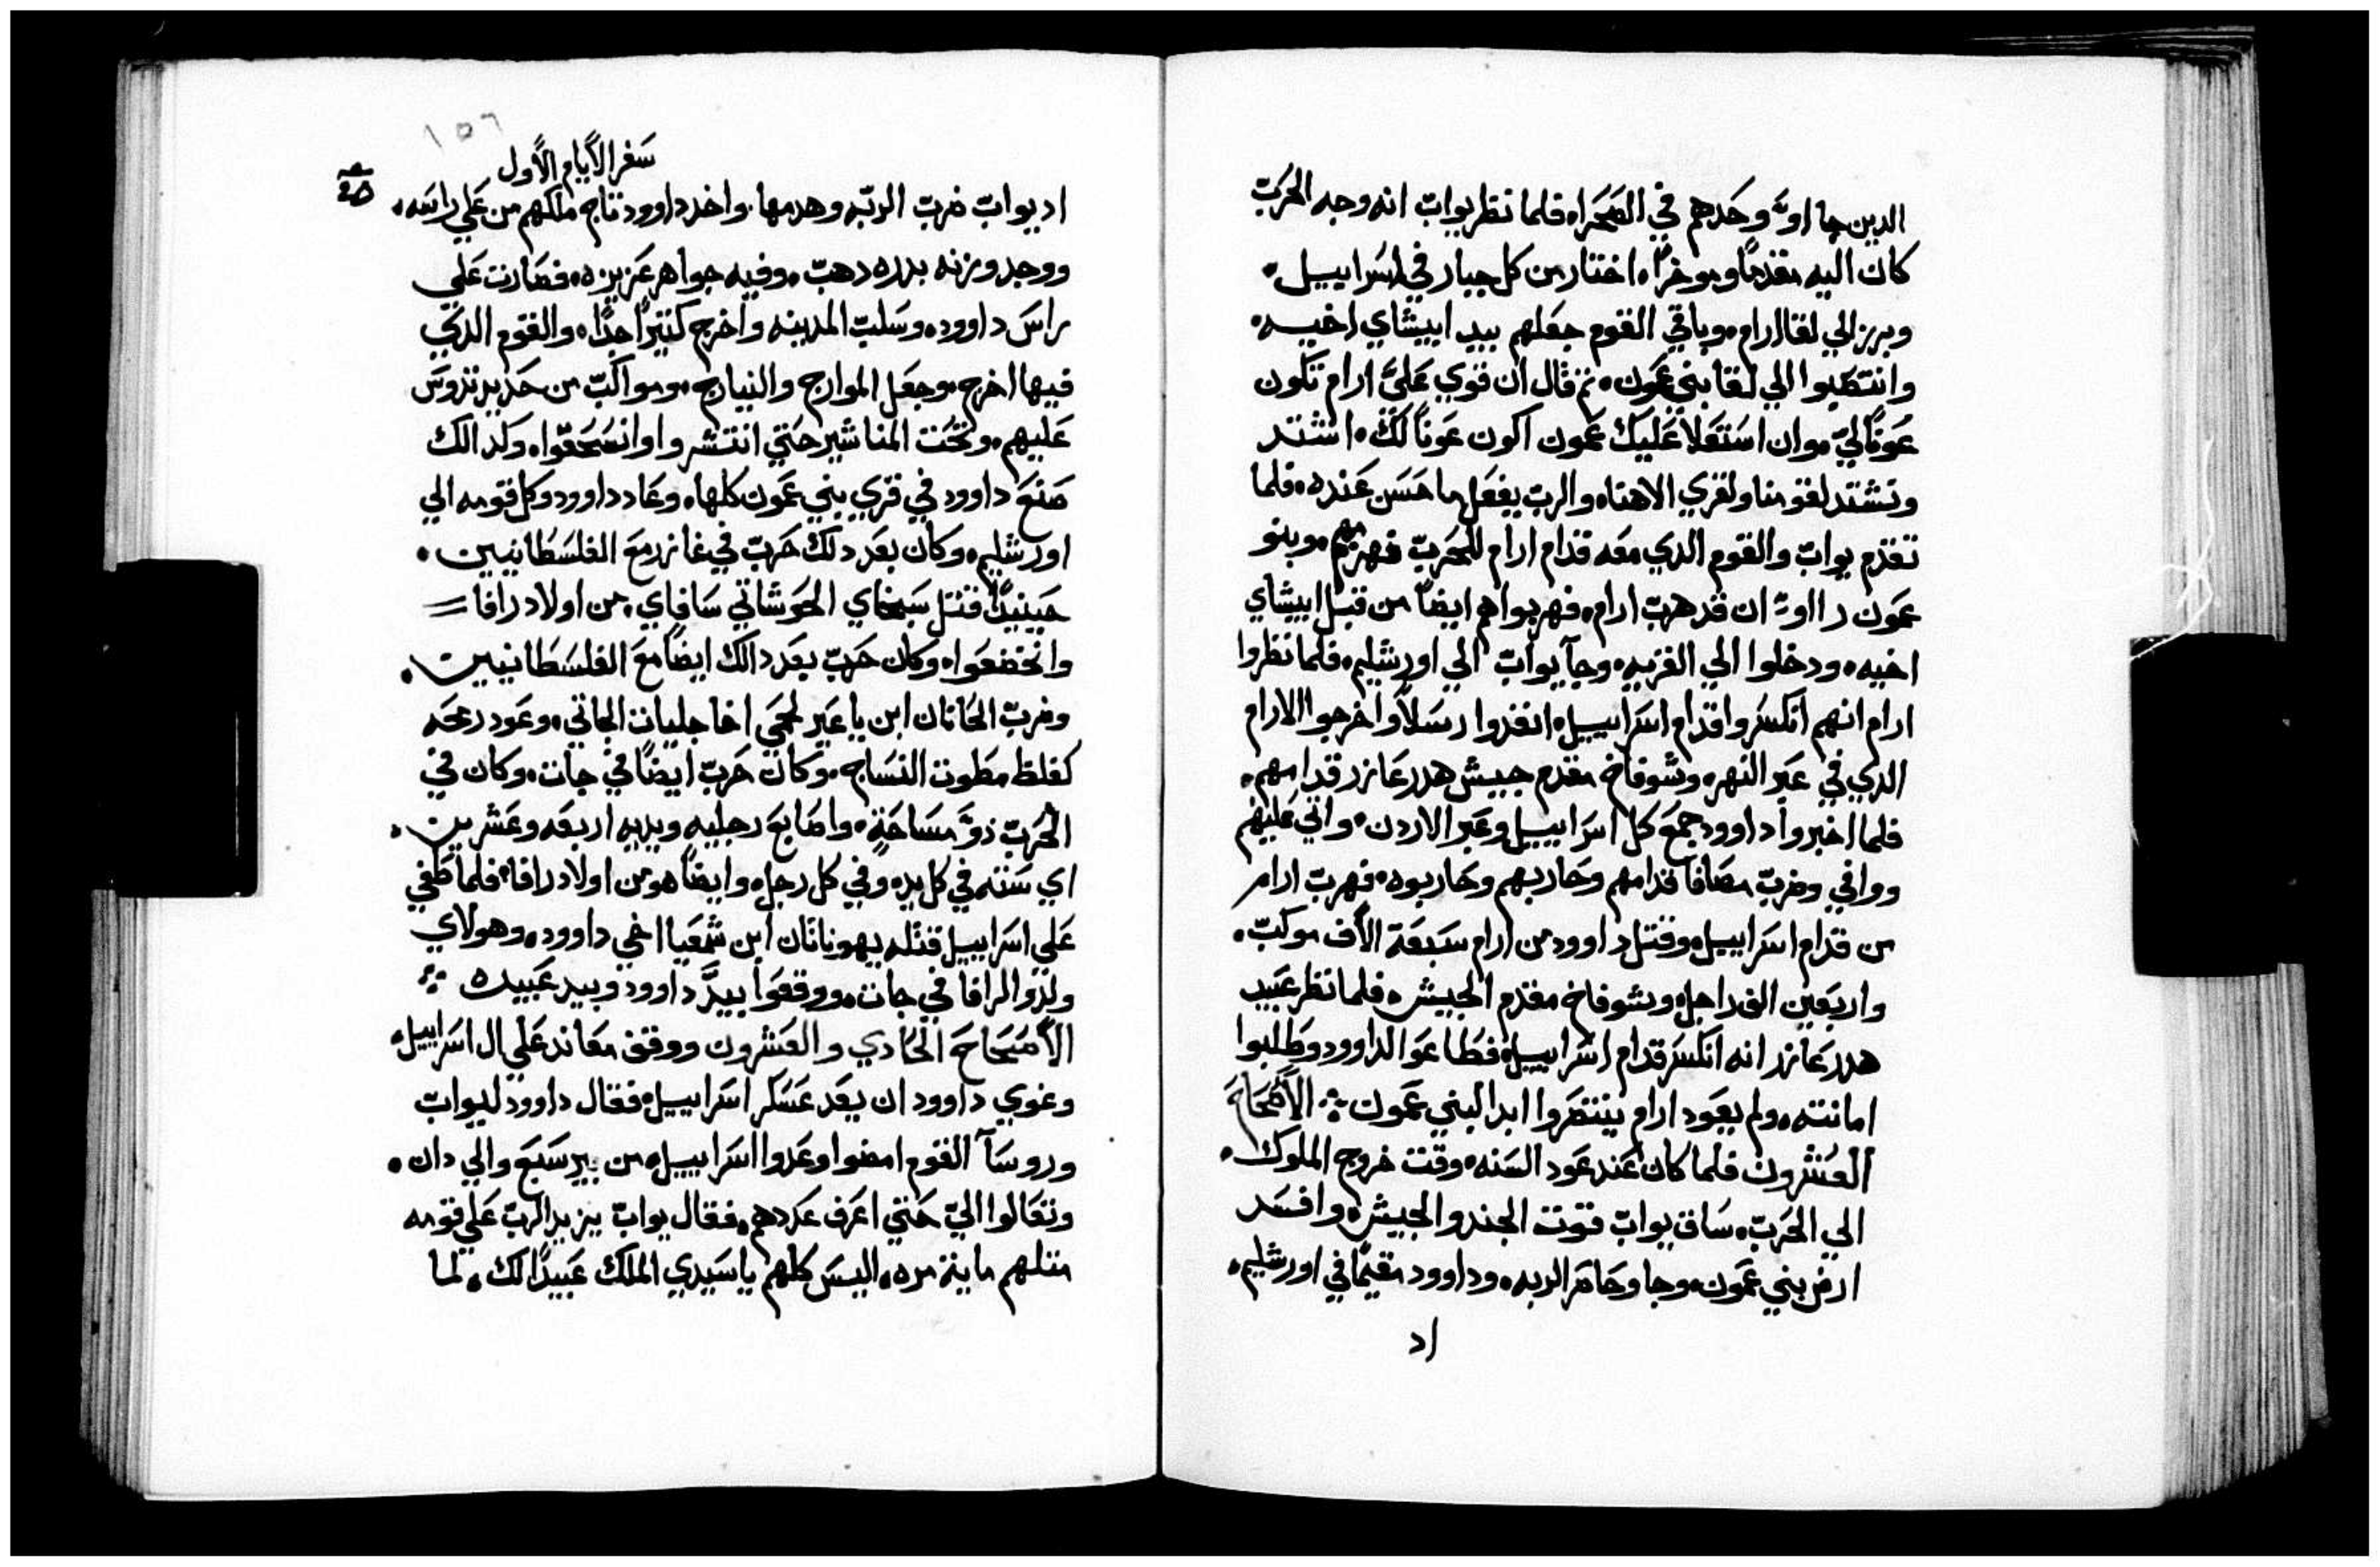 الدين جا اوّ وحَدهم في الصَحَراه فلما نظر يواب انه وجه الحَربّ
كان اليه مقدمًا وموخرًا، اختار من كل جبار في اسَراييل،
وبرز الي لقا ارام، وباقي القوم جعَلهم بيد ابيشاي اخيه،
وانتصَبوا الي لقا بني عَمون، ثم قال ان قوي عَليَّ ارام تكون
عَونًا ليّ، وان اسَتعَلا عَليك عَمون اكون عَونًا لك، اشتد
وتشتد لقومنا ولقري الاهنا، والرب يفعَل ما حَسَن عَنده، فلما
تقدم يواب والقوم الدي معَه قدام ارام للحَربّ فهزمهم، وبنو
عَمون رااوّ ان قد هربّ ارام، فهربوا هم ايضًا من قبل ابيشاي
اخيه، ودخلوا الي القريه، وجآ يوابّ الي اورشليم، فلما نظروا
ارام انهم انكسَروا قدام اسَراييل، انفدوا رسَلاً واخرجوا الارام
الدي في عَبر النهر، وشوفاخ مقدم جييش هدرعَازر قدامهم،
فلما اخبروا داوود جمَعَ كل اسَراييل وعَبر الاردن، واتي عَليهم
ووافي وضربّ مصَافا قدامهم وحَاربهم وحَاربوه، فهربّ ارام
من قدام اسَراييل، وقتل داوود من ارام سَبعَة الاف موكبّ،
واربعَين الف راجل، وشوفاخ مقدم الجييش، فلما نظر عَبيد
هدرعَازر انه انكسَر قدام اسَراييل، فطَاعَوا لداوود وطَلبوا
امانته، ولم يعَود ارام ينتصَروا ابدا لبني عَمون ؞ الأصَحَاحَ
العَشرون فلما كان عَند عَود السَنه، وقت خروج الملوك،
الي الحَربّ، سَاق يوابّ قوت الجند والجييش، وافسَد
ارض بني عَمون، وجا وحَاصَر الربه، وداوود مقيمًا في اورشليم،
اد
١٥٦
سَفر الأيام الأول
اد يوابّ ضربّ الربّه وهدمها، واخد داوود تاج ملكهم من عَلي راسَه،
ووجد وزنه بدره دهبّ، وفيه جواهر عَزيزه، فصَارت عَلي
راسَ داوود، وسَلبّ المدينه واخرج كتيرًا جدًا، والقوم الدي
فيها اخرج، وجعَل الموارج والنيارج، ومواكبّ من حَديد تدوسَ
عَليهم، وتحَت المناشير حَتي انتشروا وانسَحَقوا، وكدالك
صَنعَ داوود في قري بني عَمون كلها، وعَاد داوود وكل قومه الي
اورشليم، وكان بعَد دلك حَربّ في غازر معَ الفلسَطَانيين،
حَينيدًا قتل سَبخاي الحَوشاتي سَافاي، من اولاد رافا
وانخضعَوا، وكان حَربّ بعَد دالك ايضًا معَ الفلسَطَانيين،
وضربّ الحَانان ابن ياعَير لحَمي اخا جليات الجاتي، وعَود رمحَه
كغلظ مطَوت النسَاج، وكان حَربّ ايضًا في جات، وكان في
الحَربّ ذوَّ مسَاحَةٍ، واصَابعَ رجليه ويديه اربعَه وعَشرين،
اي سَته في كل يد، وفي كل رجل، وايضًا هو من اولاد رافا، فلما طَغي
عَلي اسَراييل قتله يهوناتان ابن شمعَيا اخي داوود، وهولاي
ولدوا لرافا في جات، ووقعَوا بيدَّ داوود وبيد عَبيده ؞
الأصَحَاحَ الحَادي والعَشرون ووقف معَاند عَلي ال اسَراييل،
وغوي داوود ان يعَد عَسَكر اسَراييل، فقال داوود ليوابّ
وروسَآ القوم امضوا وعَدوا اسَراييل، من بير سَبعَ والي دان،
وتعَالوا اليّ حَتي اعَرف عَددهم، فقال يوابّ يزيد الربّ عَلي قومه
متلهم ماية مره، اليسَ كلهم ياسَيدي الملك عَبيدًا لك، لما